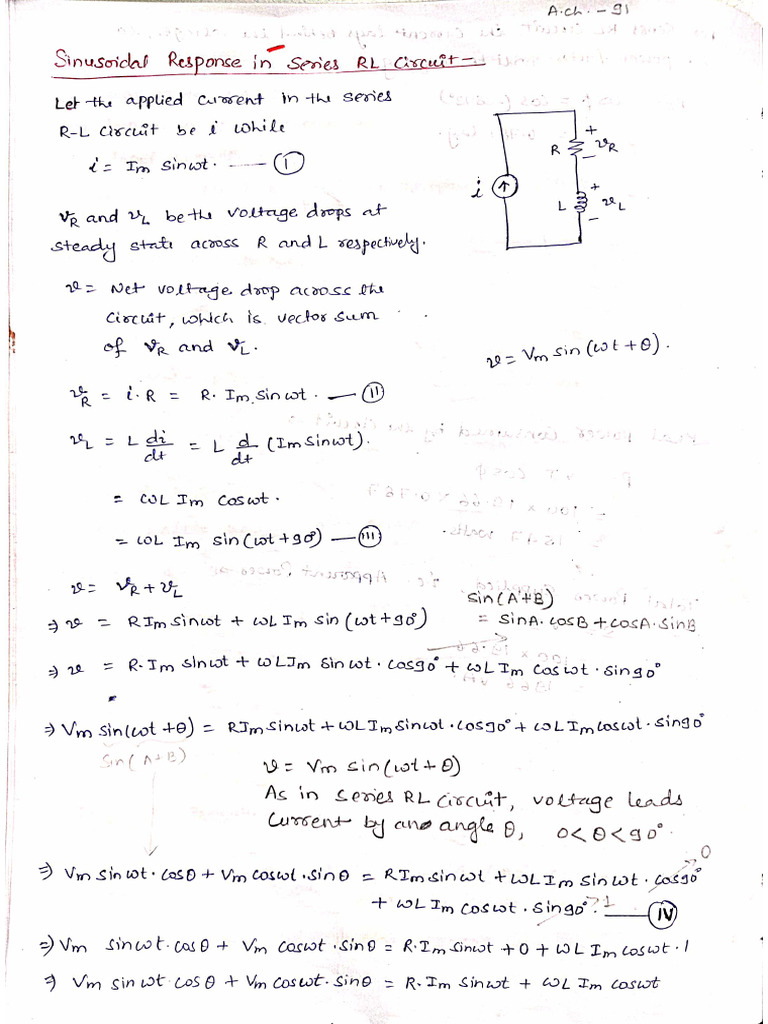 A.ch. - 91
Sinusoidal Response in Series RL Circuit -
Let the applied current in the series
R-L circuit be i while
i = Im sinωt. —— (I)
R
+
vR
−
i
+
L
vL
−
vR and vL be the voltage drops at
steady state across R and L respectively.
v = Net voltage drop across the
circuit, which is vector sum
of vR and vL.
v = Vm sin (ωt + θ).
vR = i·R = R. Im sinωt. — (II)
vL = L di/dt = L d/dt (Im sinωt).
= ωL Im cosωt.
= ωL Im sin(ωt + 90°) — (III)
v = vR + vL
sin(A+B)
= sinA. cosB + cosA. sinB
⇒ v = R Im sinωt + ωL Im sin (ωt + 90°)
⇒ v = R. Im sinωt + ωL Im sinωt. cos90° + ωL Im cosωt. sin90°
⇒ Vm sin(ωt + θ) = R Im sinωt + ωL Im sinωt. cos90° + ωL Im cosωt. sin90°
sin(A+B)
v = Vm sin(ωt + θ)
As in series RL circuit, voltage leads
current by an angle θ, 0<θ<90°.
⇒ Vm sinωt. cosθ + Vm cosωt. sinθ = R Im sinωt + ωL Im sinωt. cos90° 0
+ ωL Im cosωt. sin90° 1 —— (IV)
⇒ Vm sinωt. cosθ + Vm cosωt. sinθ = R. Im sinωt + 0 + ωL Im cosωt. 1
⇒ Vm sinωt cosθ + Vm cosωt. sinθ = R. Im sinωt + ωL Im cosωt